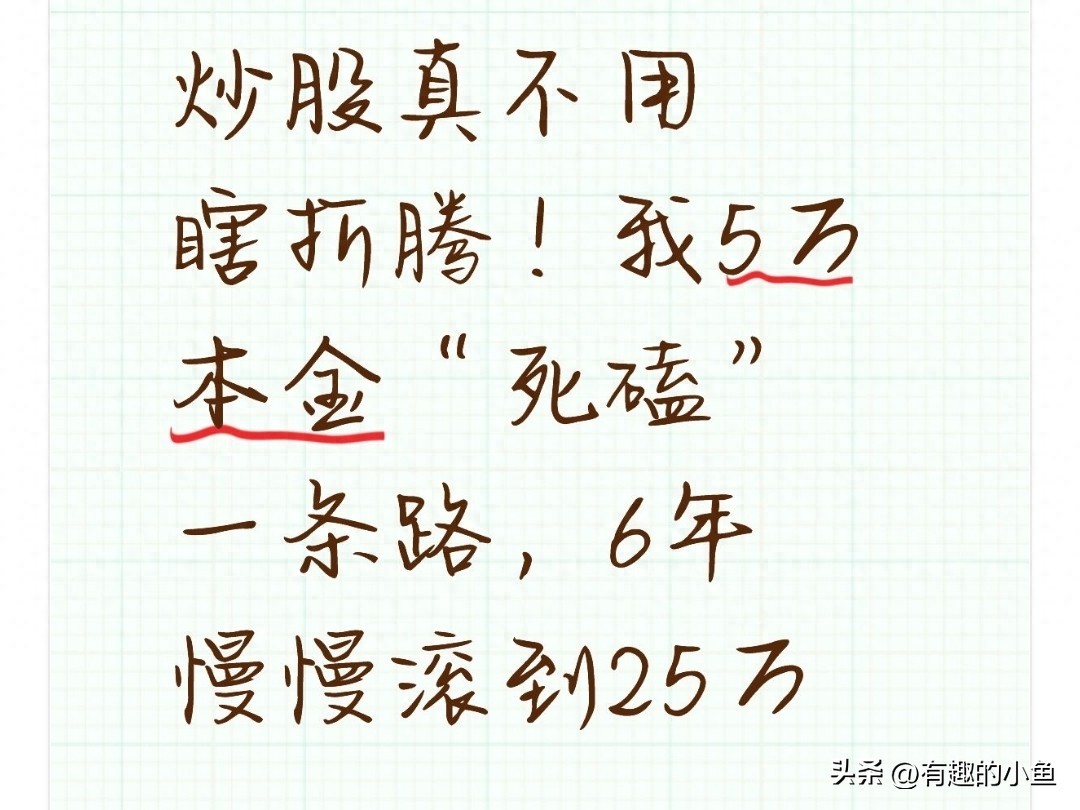 炒股真不用
瞎折腾！我5万
本金“死磕”
一条路，6年
慢慢滚到25万
头条 @有趣的小鱼